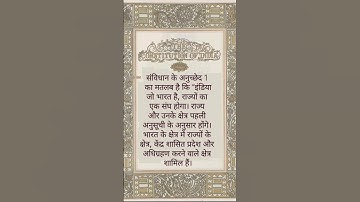 संविधान के अनुच्छेद 1
का मतलब है कि "इंडिया
जो भारत है, राज्यों का
एक संघ होगा। राज्य
और उनके क्षेत्र पहली
अनुसूची के अनुसार होंगे।
भारत के क्षेत्र में राज्यों के
क्षेत्र, केंद्र शासित प्रदेश और
अधिग्रहण करने वाले क्षेत्र
शामिल हैं।